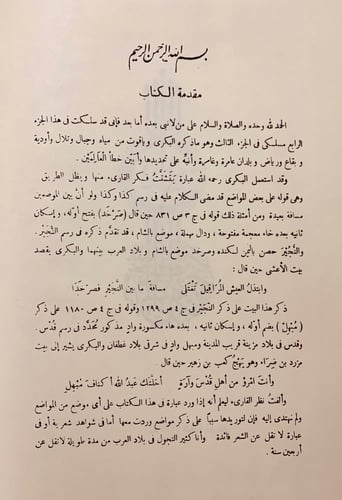 بسم الله الرحمن الرحيم
مقدمة الكتاب
الحمد لله وحده والصلاة والسلام على من لا نبي بعده أما بعد فإنى قد سلكت فى هذا الجزء
الرابع مسلكى فى الجزء الثالث وهو ما ذكره البكرى وياقوت من مياه وجبال وتلال وأودية
و بقاع ورياض وبلدان عامرة وغامرة وأنبِّه على تحديدها وأبين خطأ العالِمَيْن .
وقد استعمل البكرى رحمه الله عبارة يَتَشَتَّتُ بها فكر القارىء منها ويظل الطريق
وهى قوله على بعض المواضع قد مضى الكلام عليه فى رسم كذا وكذا ولو أنّ بين الموضعين
مسافة بعيدة ومن أمثلة ذلك قوله فى ج ٣ ص ٨٣١ حين قال (صَرْخَد) بفتح أوّله، وإسكان
ثانيه بعده خاء معجمة مفتوحة ، ودال مهملة ، موضع بالشام ، قد تقدّم ذكره فى رسم النُّجَيْر .
والنُّجَيْرُ حصن باليمن لكنده وصرخد موضع بالشام وبلاد العرب بينهما والبكرى يقصد
بيت الأعشى حين قال :
وابتذَل العيسَ المراقيلَ تَغْتَلى مسافةَ ما بين النُّجَيْرِ فصَرْخَدَا
ذكر هذا البيت على ذكر النُّجَيْر فى ج ٤ ص ١٢٩٩ وقوله فى ج ٤ ص ١١٨٠ على ذكر
( مُنْهِل ) بضم أوّله ، وإسكان ثانيه ، بعده هاء مكسورة وادٍ مذكور مُحَدَّد فى رسم قُدْس .
وقدس فى بلاد مزينة قريب المدينة ومسهل وادٍ فى شرقى بلاد غطفان والبكرى يشير إلى بيت
مزرد بن ضِرَاء وهو يهجُو كعب بن زهير حين قال .
وأنت امرؤ من أهلِ قُدْسَ وآرَةٍ أحَلَّتك عبدُ الله أكنافَ مُبْهِلِ
وألفتُ نظر القارىء ليعلم أنه إذا ورد عبارة فى هذا الكتاب على أى موضع من المواضع
ولم نهتدى إليه فإن لتوريدها سبباً على ذكر مواضع وردت معها أما فى شواهد شعرية أو فى
عبارة لا تقل عن الشعر فائدة وأنا كثير التجول فى بلاد العرب من مدة طويلة لا تقل عن
أربعين سنة .